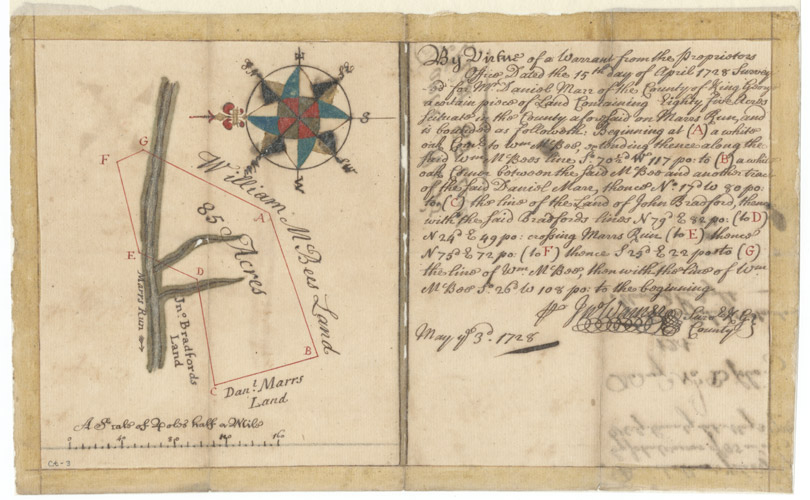 William McBees Land
85 Acres
G
F
A
E
D
B
C
Marrs Run
Jno. Bradfords
Land
Danl. Marrs
Land
A Scale of Poles half a Mile
Ct-3
By Virtue of a Warrant from the Proprietors
Office Dated the 15th day of April 1728 Survey
ed for Mr. Daniel Marr of the County of King George
a certain piece of Land Containing Eighty five Acres
scituate in the County aforesaid on Marrs Run, and
is bounded as followeth. Beginning at (A) a white
oak Corner to Wm. McBee, extending thence along the
said Wm. McBees line So. 70d. Wt. 117 po: to (B) a white
oak Corner between the said McBee and another tract
of the said Daniel Marr, thence No. 17d W 80 po:
to (C) the line of the Land of John Bradford, thence
with the said Bradfords lines N 79d E 82 po: (to D)
N 24d E 49 po: crossing Marrs Run (to E) thence
N 75d E 72 po: (to F) thence S 25d E 22 po: to (G)
the line of Wm. McBee, then with the line of Wm
McBee So. 26d W 108 po: to the beginning.
Surv. K. G.
County
May ye 3d. 1728